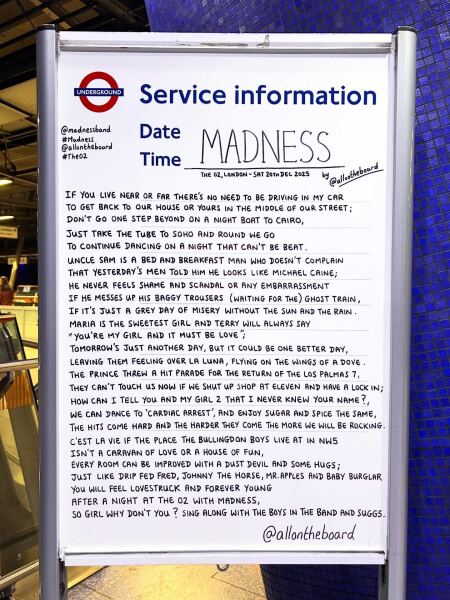 UNDERGROUND
Service information
@madnessband
#Madness
@allontheboard
#TheO2
Date
Time
MADNESS
THE O2, LONDON - SAT 20TH DEC 2025
by @allontheboard
IF YOU LIVE NEAR OR FAR THERE'S NO NEED TO BE DRIVING IN MY CAR
TO GET BACK TO OUR HOUSE OR YOURS IN THE MIDDLE OF OUR STREET;
DON'T GO ONE STEP BEYOND ON A NIGHT BOAT TO CAIRO,
JUST TAKE THE TUBE TO SOHO AND ROUND WE GO
TO CONTINUE DANCING ON A NIGHT THAT CAN'T BE BEAT.
UNCLE SAM IS A BED AND BREAKFAST MAN WHO DOESN'T COMPLAIN
THAT YESTERDAY'S MEN TOLD HIM HE LOOKS LIKE MICHAEL CAINE;
HE NEVER FEELS SHAME AND SCANDAL OR ANY EMBARRASSMENT
IF HE MESSES UP HIS BAGGY TROUSERS (WAITING FOR THE) GHOST TRAIN,
IF IT'S JUST A GREY DAY OF MISERY WITHOUT THE SUN AND THE RAIN.
MARIA IS THE SWEETEST GIRL AND TERRY WILL ALWAYS SAY
"YOU'RE MY GIRL AND IT MUST BE LOVE";
TOMORROW'S JUST ANOTHER DAY, BUT IT COULD BE ONE BETTER DAY,
LEAVING THEM FEELING OVER LA LUNA, FLYING ON THE WINGS OF A DOVE.
THE PRINCE THREW A HIT PARADE FOR THE RETURN OF THE LOS PALMAS 7,
THEY CAN'T TOUCH US NOW IF WE SHUT UP SHOP AT ELEVEN AND HAVE A LOCK IN;
HOW CAN I TELL YOU AND MY GIRL 2 THAT I NEVER KNEW YOUR NAME?,
WE CAN DANCE TO 'CARDIAC ARREST', AND ENJOY SUGAR AND SPICE THE SAME,
THE HITS COME HARD AND THE HARDER THEY COME THE MORE WE WILL BE ROCKING.
C'EST LA VIE IF THE PLACE THE BULLINGDON BOYS LIVE AT IN NW5
ISN'T A CARAVAN OF LOVE OR A HOUSE OF FUN,
EVERY ROOM CAN BE IMPROVED WITH A DUST DEVIL AND SOME HUGS;
JUST LIKE DRIP FED FRED, JOHNNY THE HORSE, MR. APPLES AND BABY BURGLAR
YOU WILL FEEL LOVESTRUCK AND FOREVER YOUNG
AFTER A NIGHT AT THE O2 WITH MADNESS,
SO GIRL WHY DON'T YOU? SING ALONG WITH THE BOYS IN THE BAND AND SUGGS.
@allontheboard